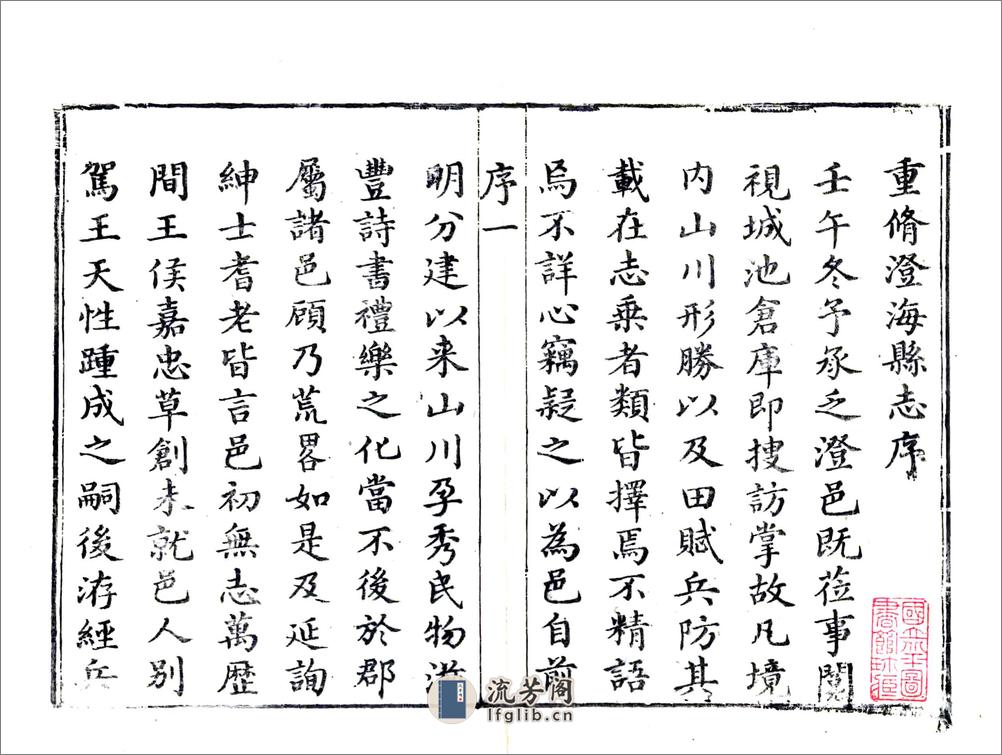 重脩澄海縣志序
壬午冬予承乏澄邑既蒞事閱
視城池倉庫即搜訪掌故凡境
内山川形勝以及田賦兵防其
載在志乗者類皆擇焉不精語
焉不詳心竊疑之以為邑自前
序一
明分建以来山川孕秀民物滋
豐詩書禮樂之化當不後於郡
屬諸邑顧乃荒畧如是及延詢
紳士耆老皆言邑初無志萬歷
間王侯嘉忠草創未就邑人別
駕王天性踵成之嗣後洊經兵
流芳阁
lfglib.cn